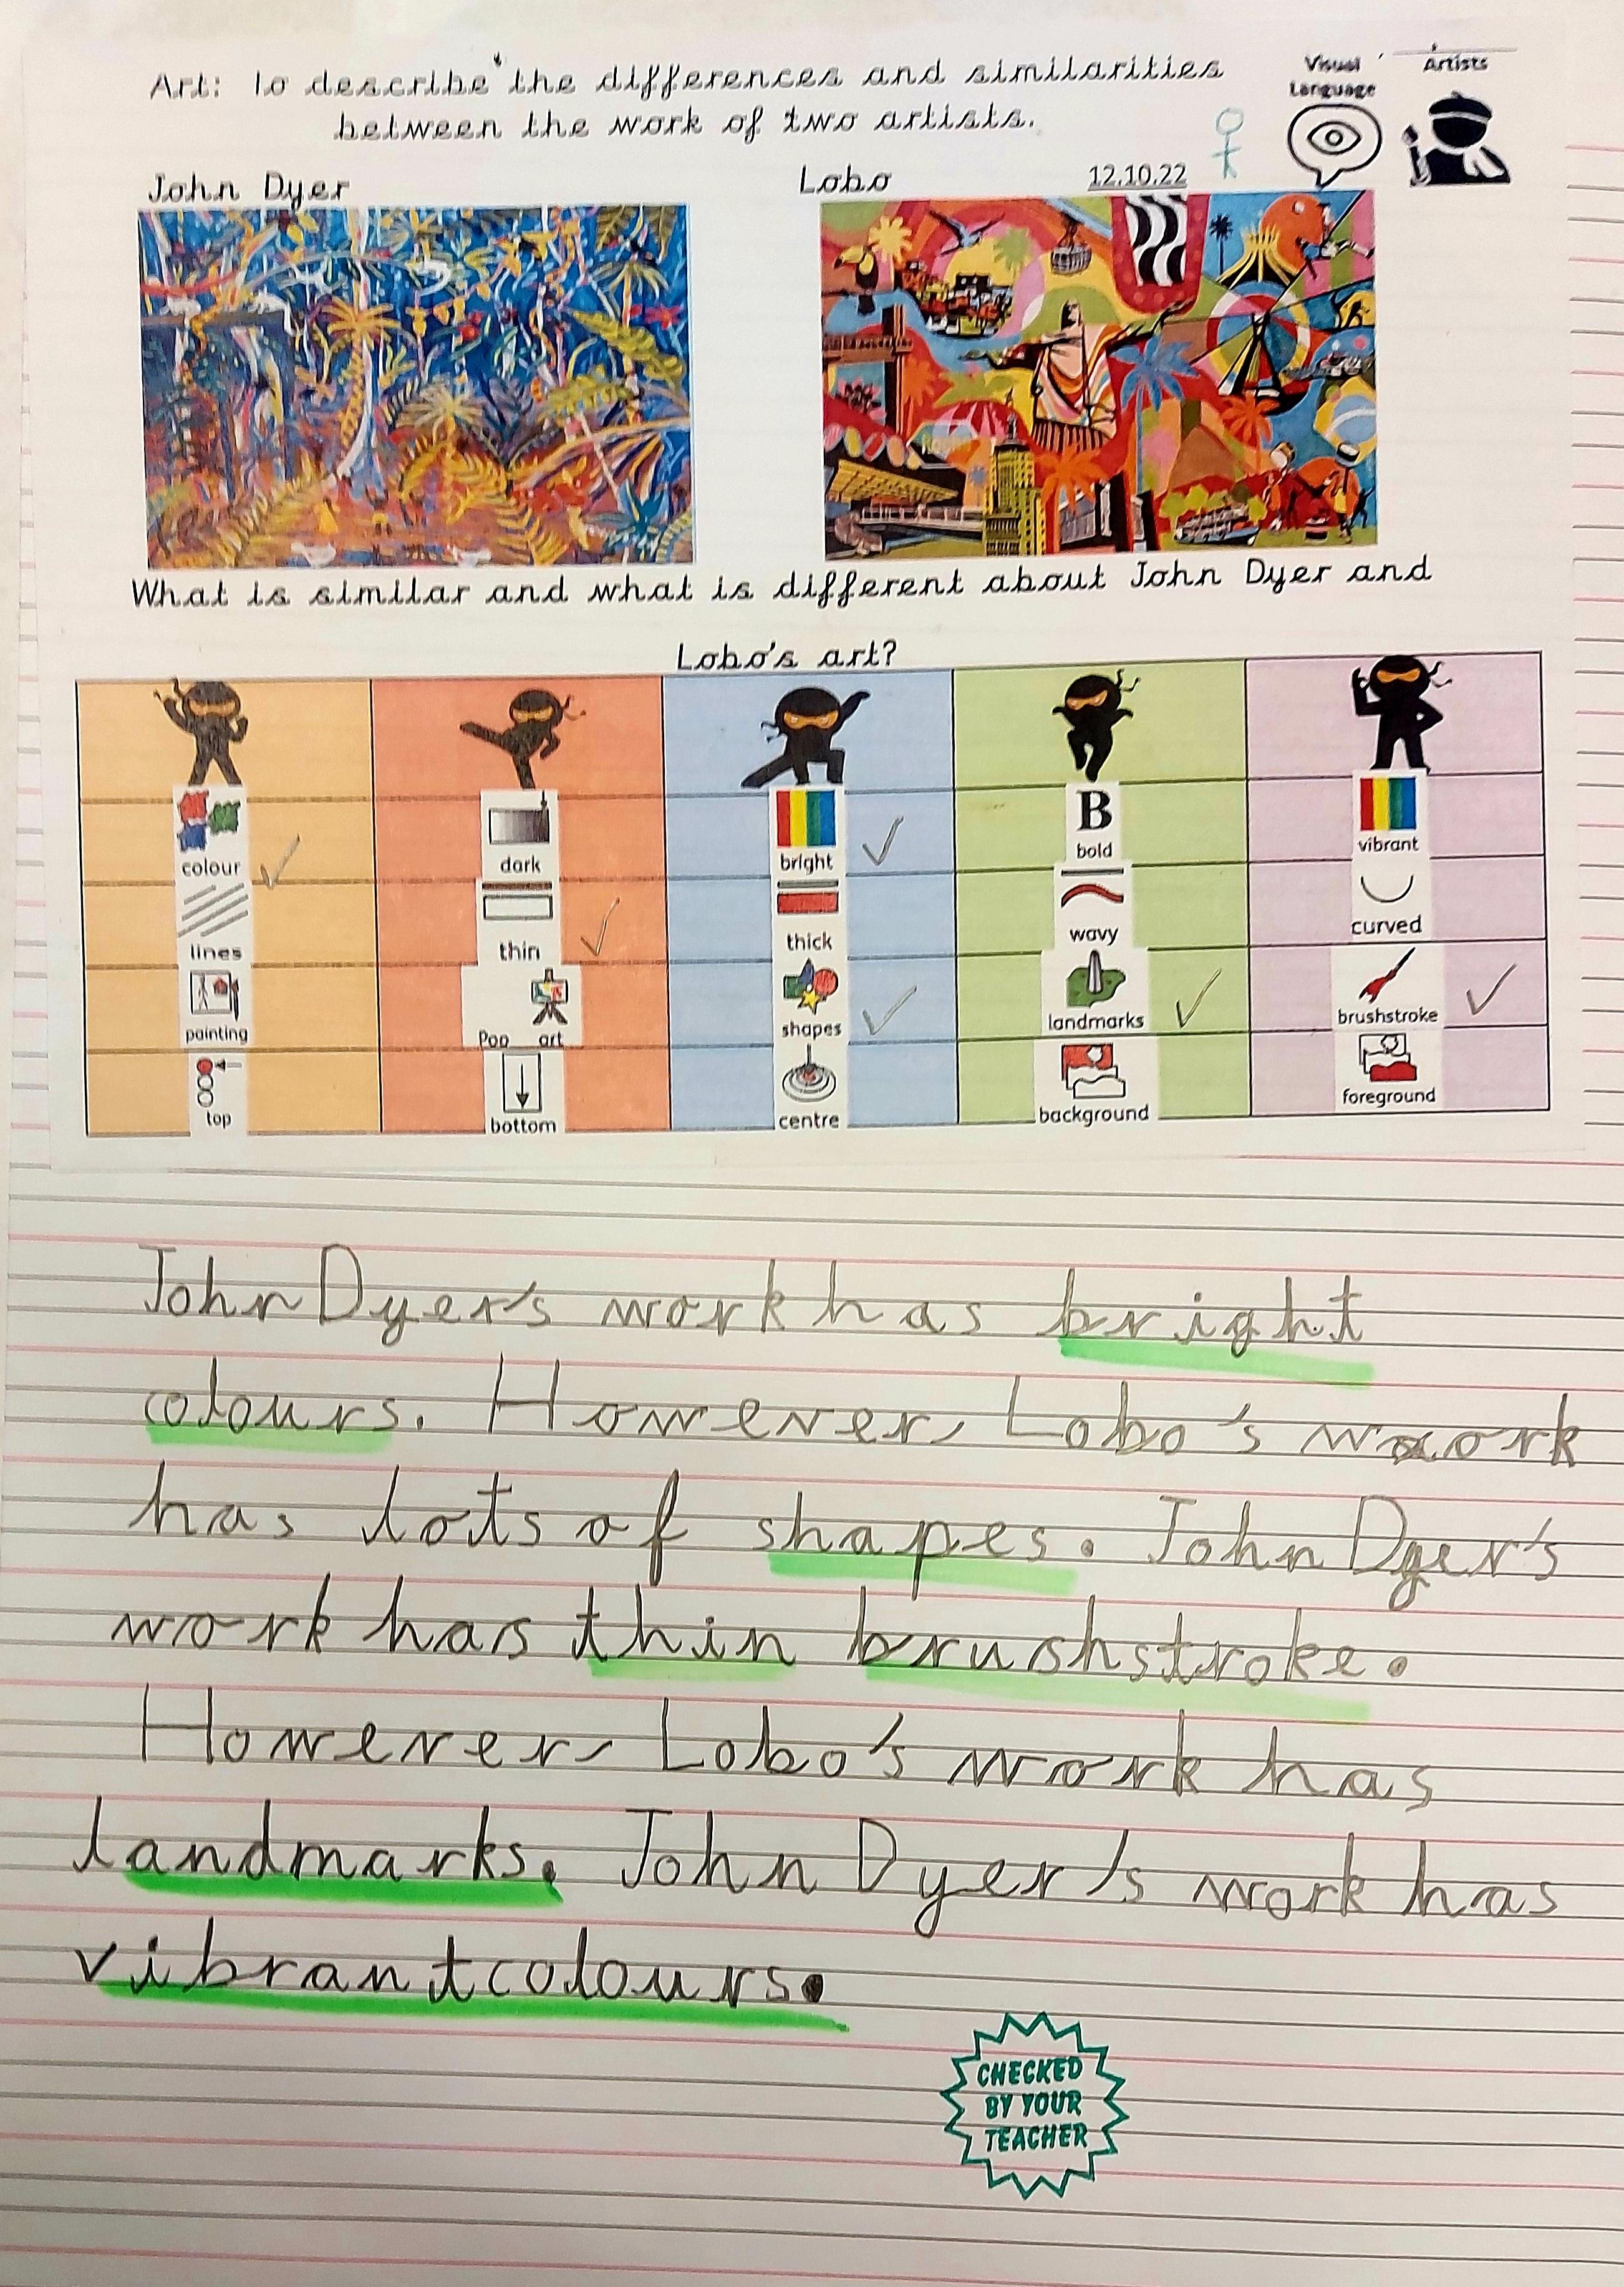 Art: To describe the differences and similarities
between the work of two artists.
Visual
Language
Artists
John Dyer
Lobo
12.10.22
What is similar and what is different about John Dyer and
Lobo's art?
colour
dark
bright
B
bold
vibrant
lines
thin
thick
wavy
curved
painting
Pop art
shapes
landmarks
brushstroke
top
bottom
centre
background
foreground
John Dyer's work has bright
colours. However, Lobo's work
has lots of shapes. John Dyer's
work has thin brushstroke.
However, Lobo's work has
landmarks. John Dyer's work has
vibrant colours.
CHECKED
BY YOUR
TEACHER